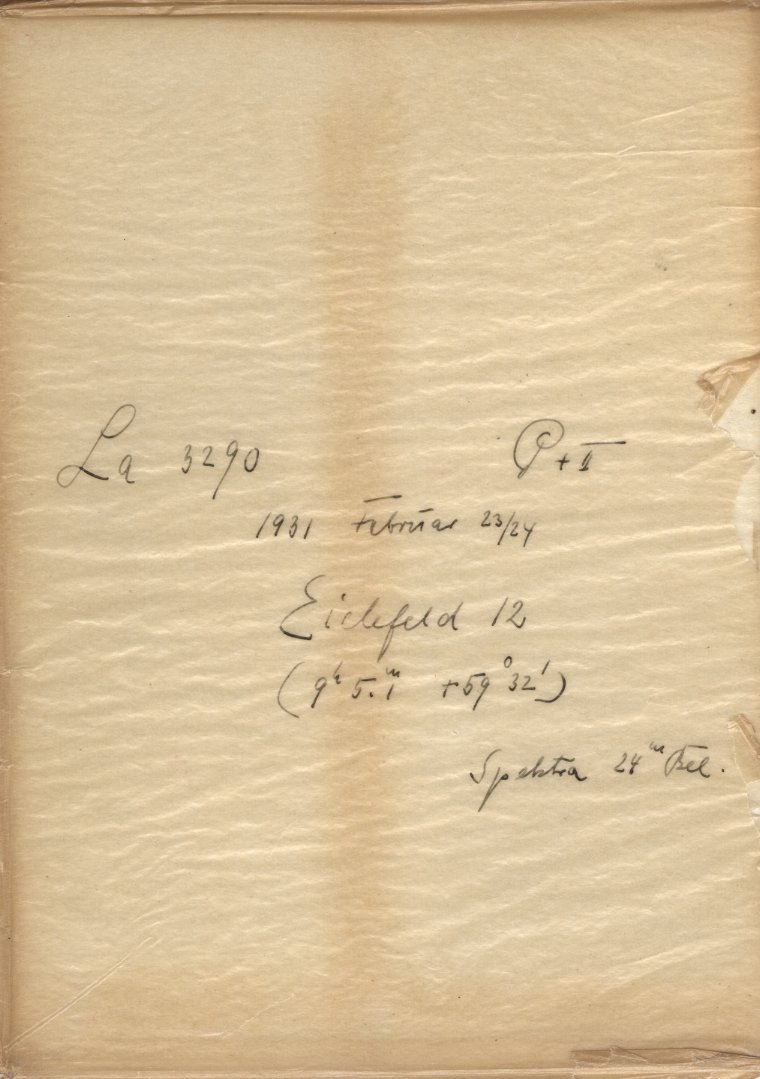 La 3290 P + I
1931 Februar 23/24
Eichfeld 12
(9h 5.m1 +59° 32')
Spektra 24m Bel.